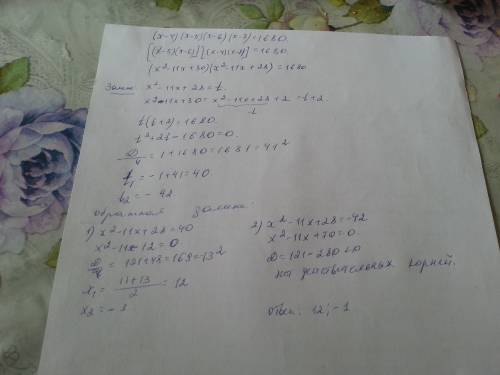 (x-4)(x-5)(x-6)(x-7)=1680.
[(x-5)(x-6)][(x-4)(x-7)]=1680.
(x²-11x+30)(x²-11x+28)=1680
Замена: x²-11x+28=t.
x²-11x+30=x²-11x+28+2=t+2.
t
t(t+2)=1680.
t²+2t-1680=0.
D/4=1+1680=1681=41²
t₁=-1+41=40.
t₂=-42
обратная замена:
1) x²-11x+28=40
x²-11x-12=0
D/4=121+48=169=13²
x₁=(11+13)/2=12
x₂=-1
2) x²-11x+28=-42
x²-11x+70=0.
D=121-280<0
действительных корней.
Ответ: 12; -1